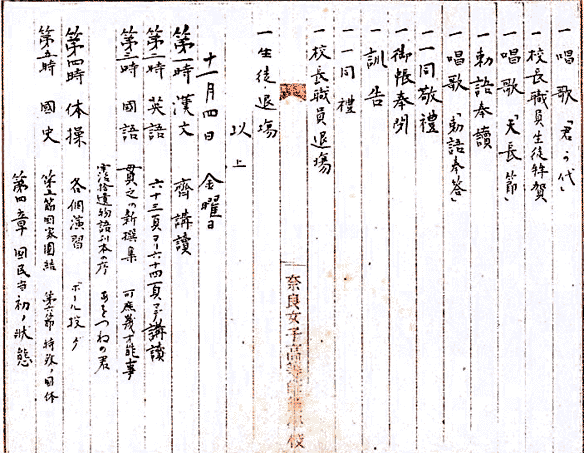 一 唱歌「君が代」
一 校長職員生徒拝賀
一 唱歌「天長節」
一 勅語奉讀
一 唱歌「勅語奉答」
一 一同敬禮
一 御帳奉閉
一 訓告
一 一同禮
一 校長職員退場
奈良女子高等師範學校
一 生徒退場
以上
十一月四日 金曜日
第一時 漢文 齊 講讀
第二時 英語 六十三頁ヨリ六十四頁マデ講讀
第三時 國語 貫之の新撰集 可庶幾才能事
宇治拾遺物語 の序 あをつねの君
第四時 体操 各個演習 ボール投ゲ
第五時 國史 第五節 国家團結 第六節 特殊ノ国体
第四章 国民当初ノ状態